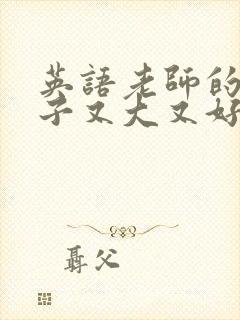 英語老師的
子又大又好
聶父